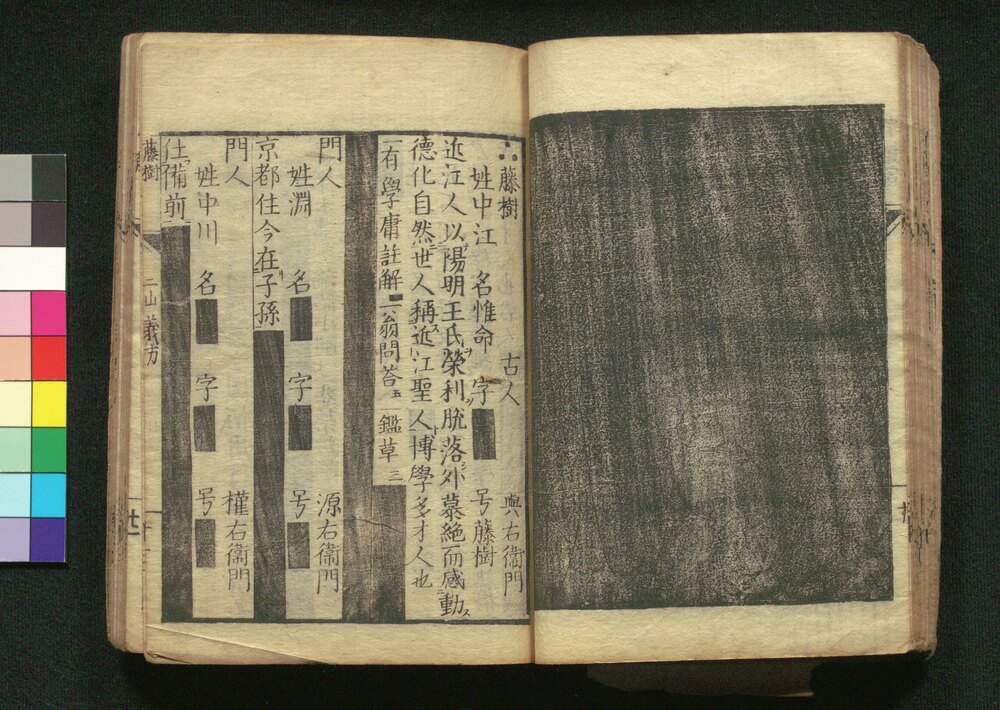 藤樹 古人 與右衞門
姓中江 名惟命 字 号藤樹
近江人以陽明王氏榮利脫落外慕絶而感動ス
德化自然世人稱近江聖人博學多才人也
有學庸註解二翁問答五鑑草三
門人 源右衞門
姓淵 名 字 号
京都住今在子孫
門人 權右衞門
姓中川 名 字 号
仕備前
藤樹 二山 義方